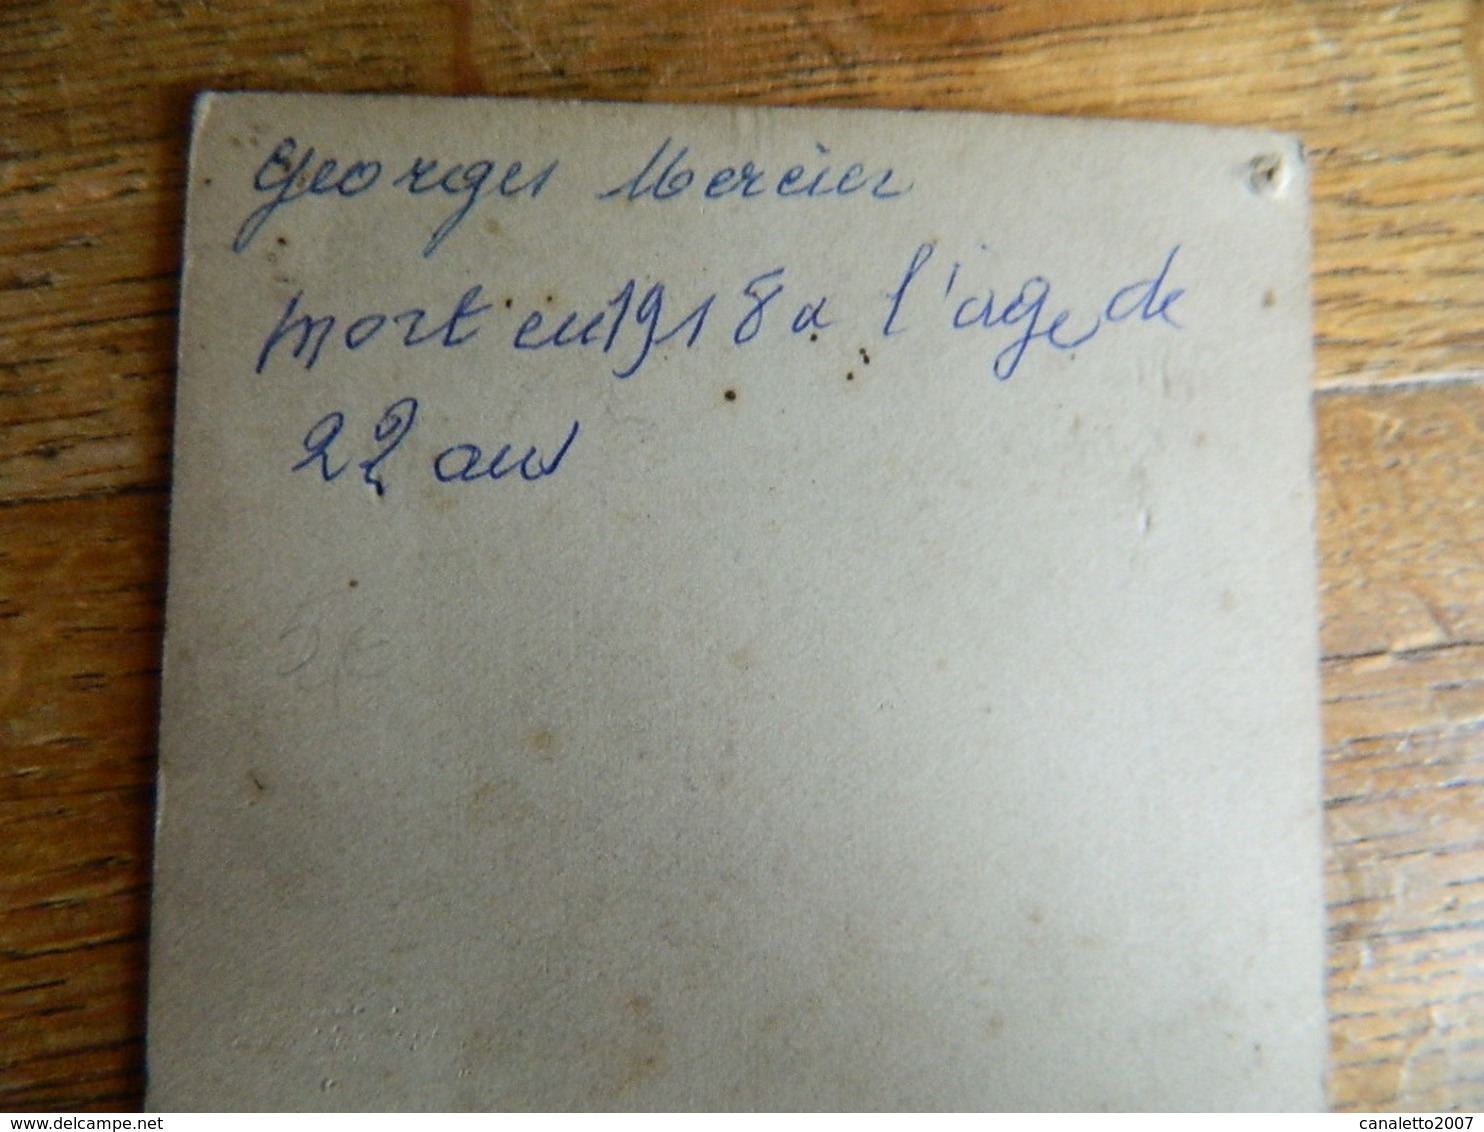 Georges Mercier
mort en 1918 a l'age de
22 ans
5€
www.delcampe.net
canaletto2007